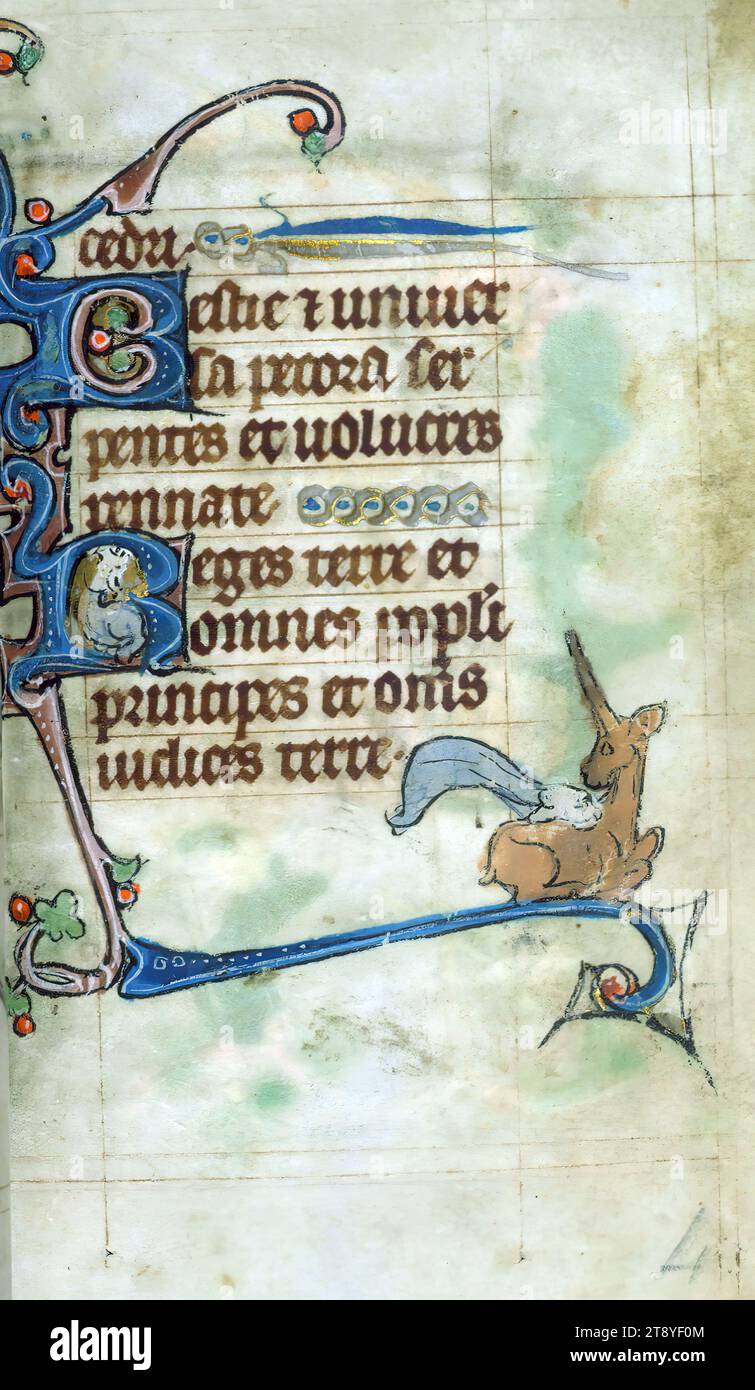 cedri.
Bestie ⁊ uniuer
sa pecora ser
pentes et uolucres
pennate
Reges terre et
omnes popl'i
principes et om̄s
iudices terre.
alamy
alamy
Image ID: 2T8YF0M
www.alamy.com